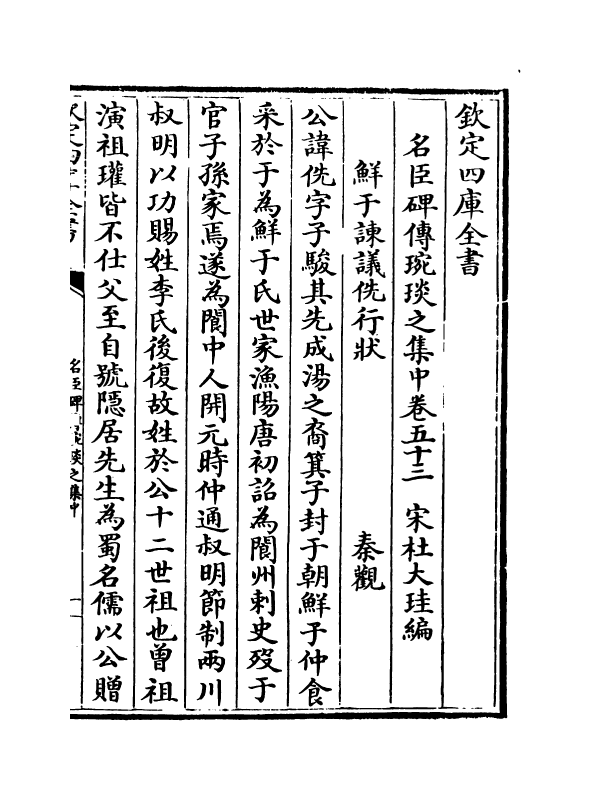 欽定四庫全書
名臣碑傳琬琰之集中卷五十三　宋杜大珪編
鮮于諫議侁行狀　秦觀
公諱侁字子駿其先成湯之裔箕子封于朝鮮子仲食
采於于為鮮于氏世家漁陽唐初詔為閬州刺史歿于
官子孫家焉遂為閬中人開元時仲通叔明節制兩川
叔明以功賜姓李氏後復故姓於公十二世祖也曾祖
演祖瓘皆不仕父至自號隱居先生為蜀名儒以公贈
名臣碑琬琰之集中
一